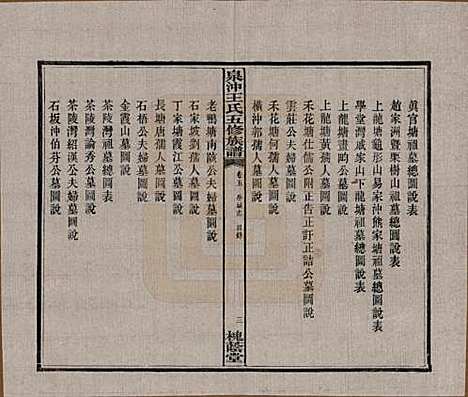 真官塘祖墓總圖說表
趙家洲暨栗樹山祖墓總圖說表
上龍塘龜形山易家沖熊家塘祖墓總圖說表
學堂灣戚家山下龍塘祖墓總圖說表
上龍塘畫畸公墓圖說
禾花塘仕儒公附正告正訂正詰公墓圖說
雲莊公夫婦墓圖說
禾花塘何孺人墓圖說
橫沖郭孺人墓圖說
泉沖王氏五修族譜
卷五
目錄
三
槐蔭堂
老鴨塘南陔公夫婦墓圖說
石家坡劉孺人墓圖說
丁家塘霞江公墓圖說
長塘唐孺人墓圖說
石梧公夫婦墓圖說
金霞山墓圖說
茶陵灣祖墓總圖說表
茶陵灣論秀公墓圖說
茶陵灣紹漢公夫婦墓圖說
石坂沖伯芬公墓圖說